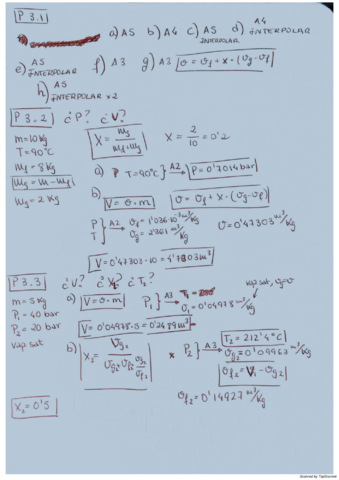 P 3.1
a) A5 b) A4 c) A5 INTERPOLAR d) A4 INTERPOLAR
e) A5 INTERPOLAR f) A3 g) A3 v = vf + x · (vg - vf)
h) A5 INTERPOLAR x 2
P 3.2 ¿P? ¿V?
m = 10 kg
T = 90°C
mf = 8 kg
mg = m - mf
mg = 2 kg
x = mg / (mf + mg) x = 2/10 = 0'2
a) P T = 90°C } A2 → P = 0'7014 bar
b) V = v · m v = vf + x · (vg - vf)
P T } A2 vf = 1'036·10⁻³ m³/kg
vg = 2'361 m³/kg v = 0'47303 m³/kg
V = 0'47303·10 = 4'7303 m³
P 3.3 ¿V? ¿X₂? ¿T₂?
m = 5 kg
P₁ = 40 bar
P₂ = 20 bar
vap sat
X₂ = 0'5
a) V = v · m P₁ } A3
vap sat, v₁ = v
v₁ = 0'04978 m³/kg
V = 0'04978·5 = 0'2489 m³
b) P₂ } A3 T₂ = 212'4°C
vg₂ = 0'09963 m³/kg
vf₂ = V₁ - vg₂
vf₂ = 0'14927 m³/kg
Scanned by TapScanner